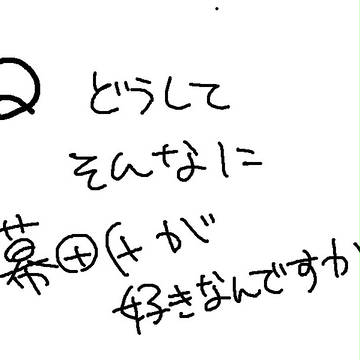 Q どうして
そんなに
幕田けが
好きなんですか